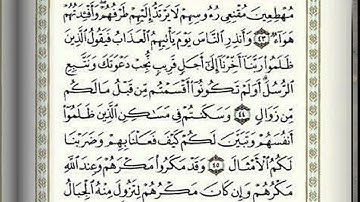 مُهْطِعِينَ مُقْنِعِي رُءُوسِهِمْ لَا يَرْتَدُّ إِلَيْهِمْ طَرْفُهُمْ وَأَفْئِدَتُهُمْ
هَوَاءٌ ٤٣ وَأَنذِرِ النَّاسَ يَوْمَ يَأْتِيهِمُ الْعَذَابُ فَيَقُولُ الَّذِينَ
ظَلَمُوا رَبَّنَا أَخِّرْنَا إِلَىٰ أَجَلٍ قَرِيبٍ نُّجِبْ دَعْوَتَكَ وَنَتَّبِعِ
الرُّسُلَ أَوَلَمْ تَكُونُوا أَقْسَمْتُم مِّن قَبْلُ مَا لَكُم
مِّن زَوَالٍ ٤٤ وَسَكَنتُمْ فِي مَسَاكِنِ الَّذِينَ ظَلَمُوا
أَنفُسَهُمْ وَتَبَيَّنَ لَكُمْ كَيْفَ فَعَلْنَا بِهِمْ وَضَرَبْنَا
لَكُمُ الْأَمْثَالَ ٤٥ وَقَدْ مَكَرُوا مَكْرَهُمْ وَعِندَ اللَّهِ
مَكْرُهُمْ وَإِن كَانَ مَكْرُهُمْ لِتَزُولَ مِنْهُ الْجِبَالُ